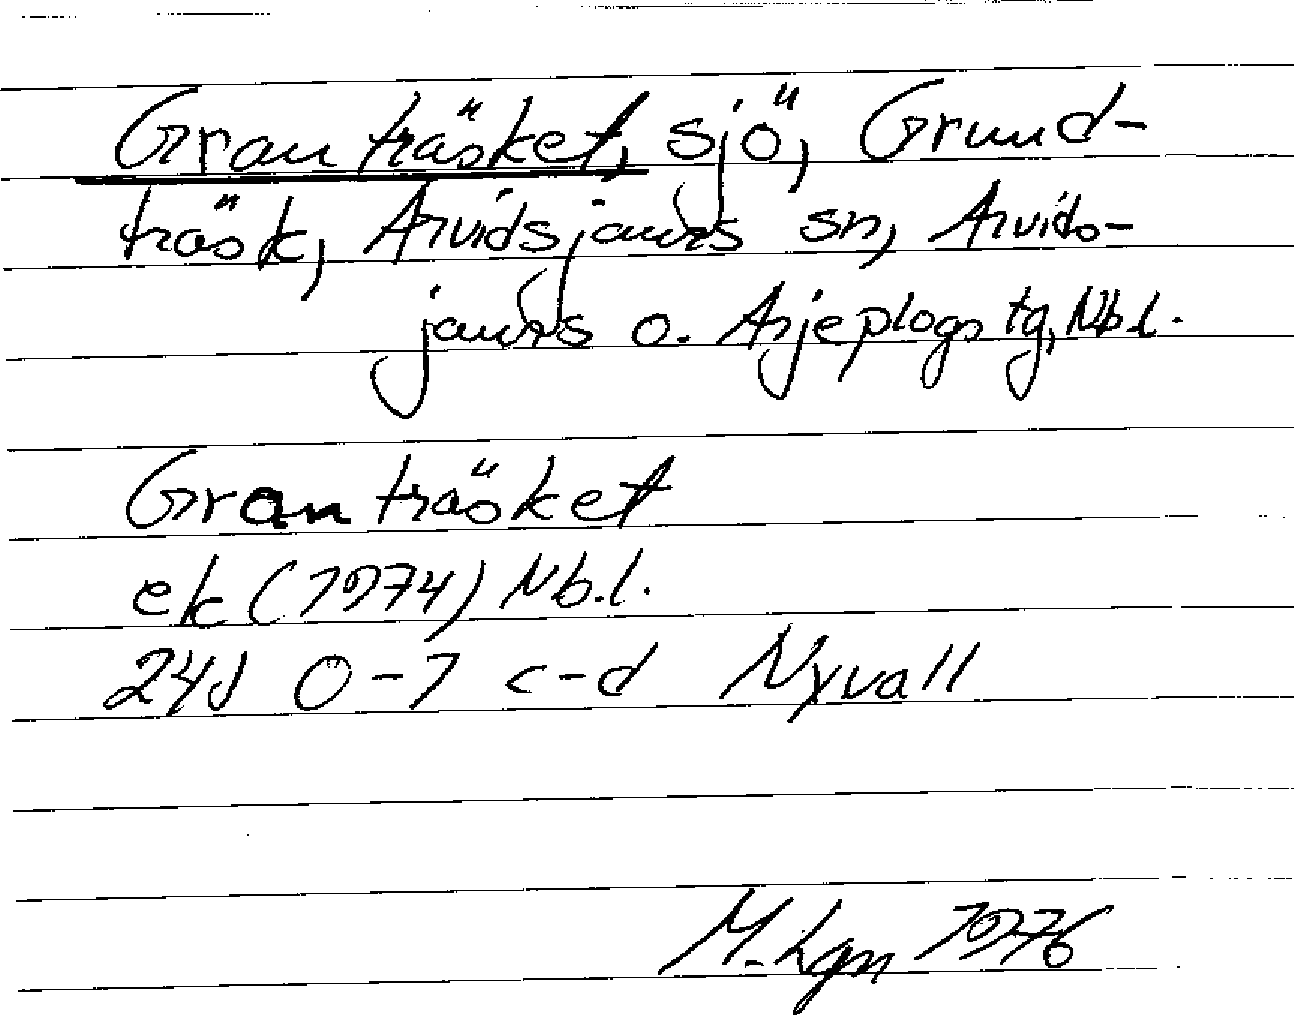 Granträsket, sjö, Grund-
träsk, Arvidsjaurs sn, Arvids-
jaurs o. Arjeplogs tg, Nb.l.
Granträsket
ek (1974) Nb.l.
24J 0-1 c-d Nyvall
M. Lgn 1976